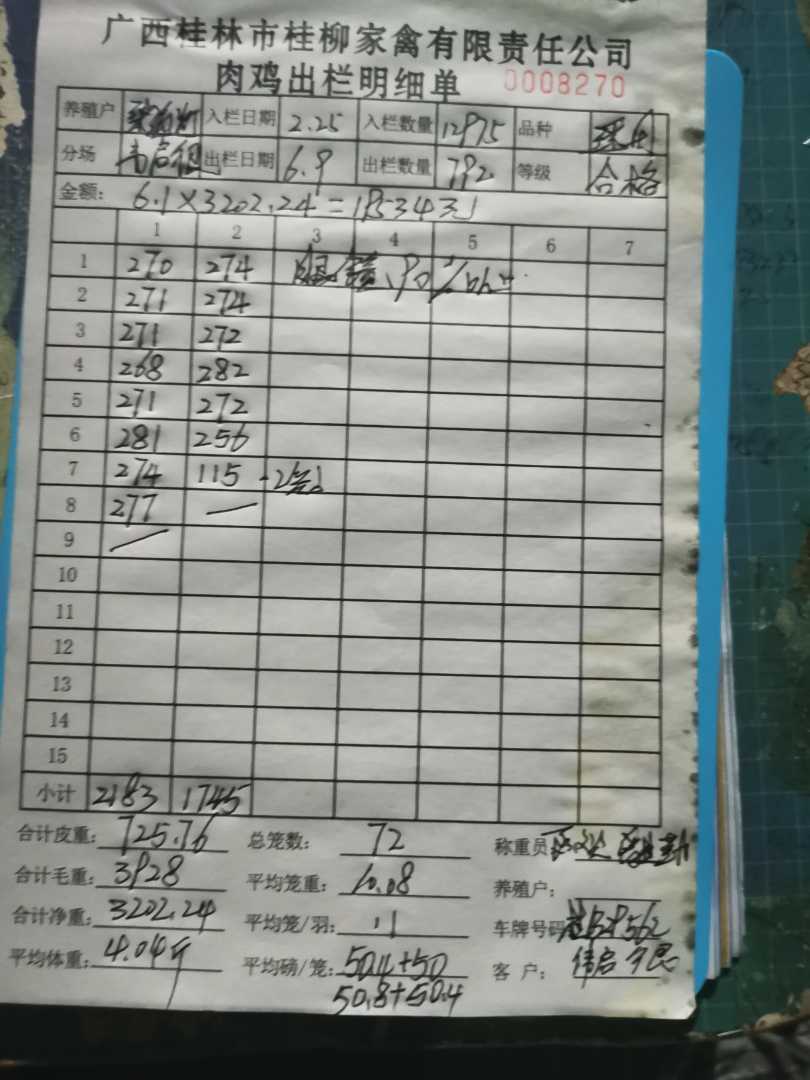 广西桂林市桂柳家禽有限责任公司
肉鸡出栏明细单 0008270
养殖户 入栏日期 2.25 入栏数量 12975 品种
分场 出栏日期 6.9 出栏数量 792 等级 合格
金额: 6.1×3202.24=19534元
1 2 3 4 5 6 7
1 270 274
2 271 274
3 271 272
4 268 282
5 271 272
6 281 256
7 274 115 -2笼
8 277 —
9 —
10
11
12
13
14
15
小计 2183 1745
合计皮重: 725.76 总笼数: 72 称重员
合计毛重: 3928 平均笼重: 10.08 养殖户:
合计净重: 3202.24 平均笼/羽: 11 车牌号码
平均体重: 4.04斤 平均磅/笼: 50.4+50 客户:
50.8+50.4